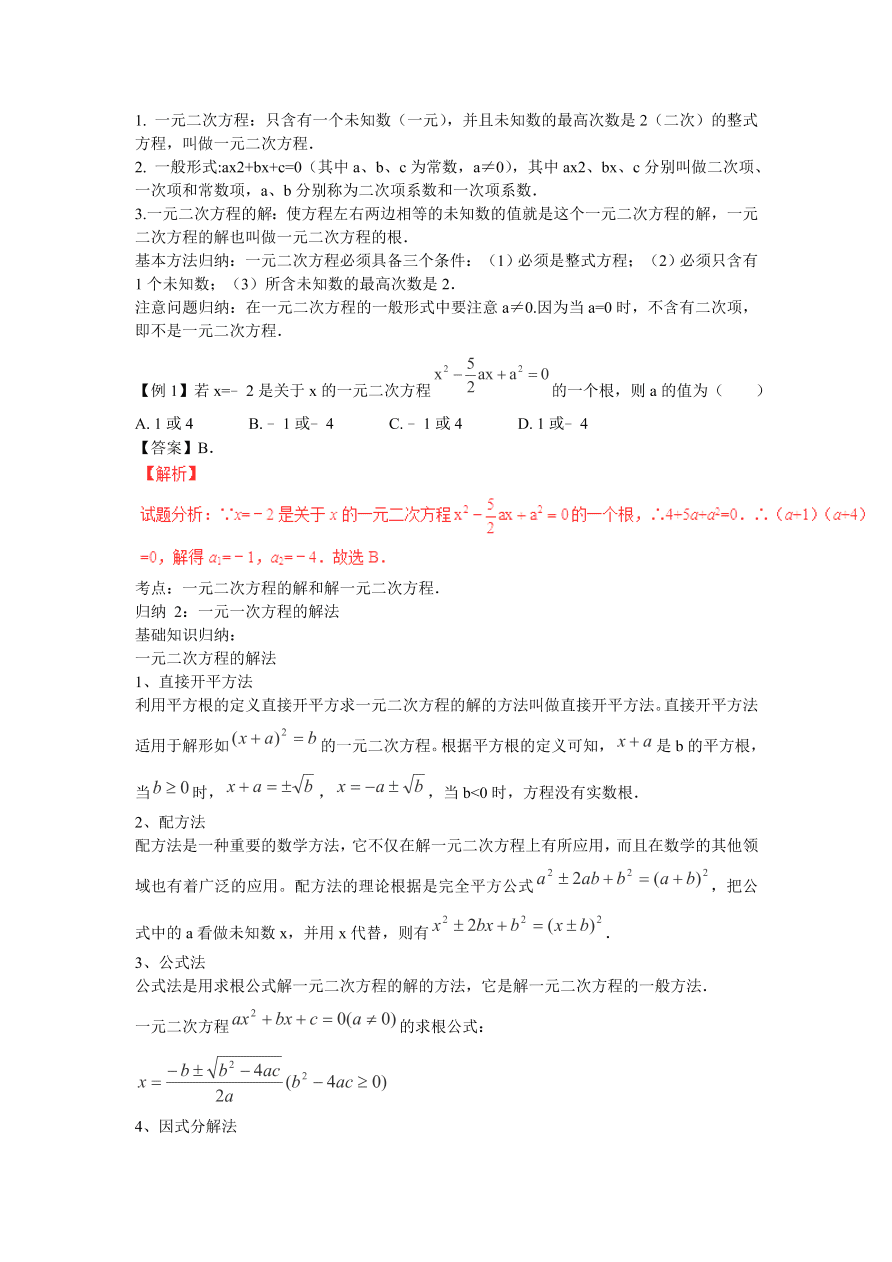 1. 一元二次方程：只含有一个未知数（一元），并且未知数的最高次数是 2（二次）的整式
方程，叫做一元二次方程．
2. 一般形式:ax2+bx+c=0（其中 a、b、c 为常数，a≠0），其中 ax2、bx、c 分别叫做二次项、
一次项和常数项，a、b 分别称为二次项系数和一次项系数．
3.一元二次方程的解：使方程左右两边相等的未知数的值就是这个一元二次方程的解，一元
二次方程的解也叫做一元二次方程的根．
基本方法归纳：一元二次方程必须具备三个条件：（1）必须是整式方程；（2）必须只含有
1 个未知数；（3）所含未知数的最高次数是 2．
注意问题归纳：在一元二次方程的一般形式中要注意 a≠0.因为当 a=0 时，不含有二次项，
即不是一元二次方程．
【例 1】若 x=﹣2 是关于 x 的一元二次方程 x² − 5/2 ax + a² = 0 的一个根，则 a 的值为（　　）
A. 1 或 4　　B.﹣1 或﹣4　　C.﹣1 或 4　　D. 1 或﹣4
【答案】B．
【解析】
试题分析：∵x=﹣2 是关于 x 的一元二次方程 x² − 5/2 ax + a² = 0 的一个根，∴4+5a+a²=0．∴（a+1）（a+4）
=0，解得 a₁=﹣1，a₂=﹣4．故选 B．
考点：一元二次方程的解和解一元二次方程．
归纳 2：一元一次方程的解法
基础知识归纳：
一元二次方程的解法
1、直接开平方法
利用平方根的定义直接开平方求一元二次方程的解的方法叫做直接开平方法。直接开平方法
适用于解形如 (x + a)² = b 的一元二次方程。根据平方根的定义可知， x + a 是 b 的平方根，
当 b ≥ 0 时， x + a = ±√b ， x = −a ± √b ，当 b<0 时，方程没有实数根．
2、配方法
配方法是一种重要的数学方法，它不仅在解一元二次方程上有所应用，而且在数学的其他领
域也有着广泛的应用。配方法的理论根据是完全平方公式 a² ± 2ab + b² = (a + b)² ，把公
式中的 a 看做未知数 x，并用 x 代替，则有 x² ± 2bx + b² = (x ± b)² ．
3、公式法
公式法是用求根公式解一元二次方程的解的方法，它是解一元二次方程的一般方法．
一元二次方程 ax² + bx + c = 0(a ≠ 0) 的求根公式：
x = (−b ± √(b² − 4ac)) / 2a (b² − 4ac ≥ 0)
4、因式分解法